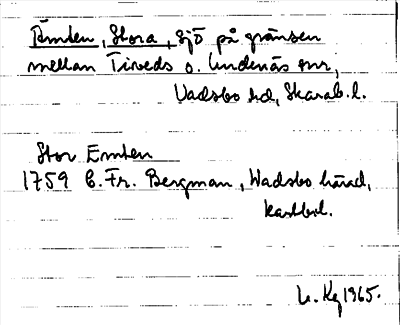 Ämten, Stora, sjö på gränsen
mellan Tiveds o. Undenäs snr,
Vadsbo hd, Skarab. l.
Stor Emten
1759 C. Fr. Bergman, Wadsbo härad,
kartbl.
1965.